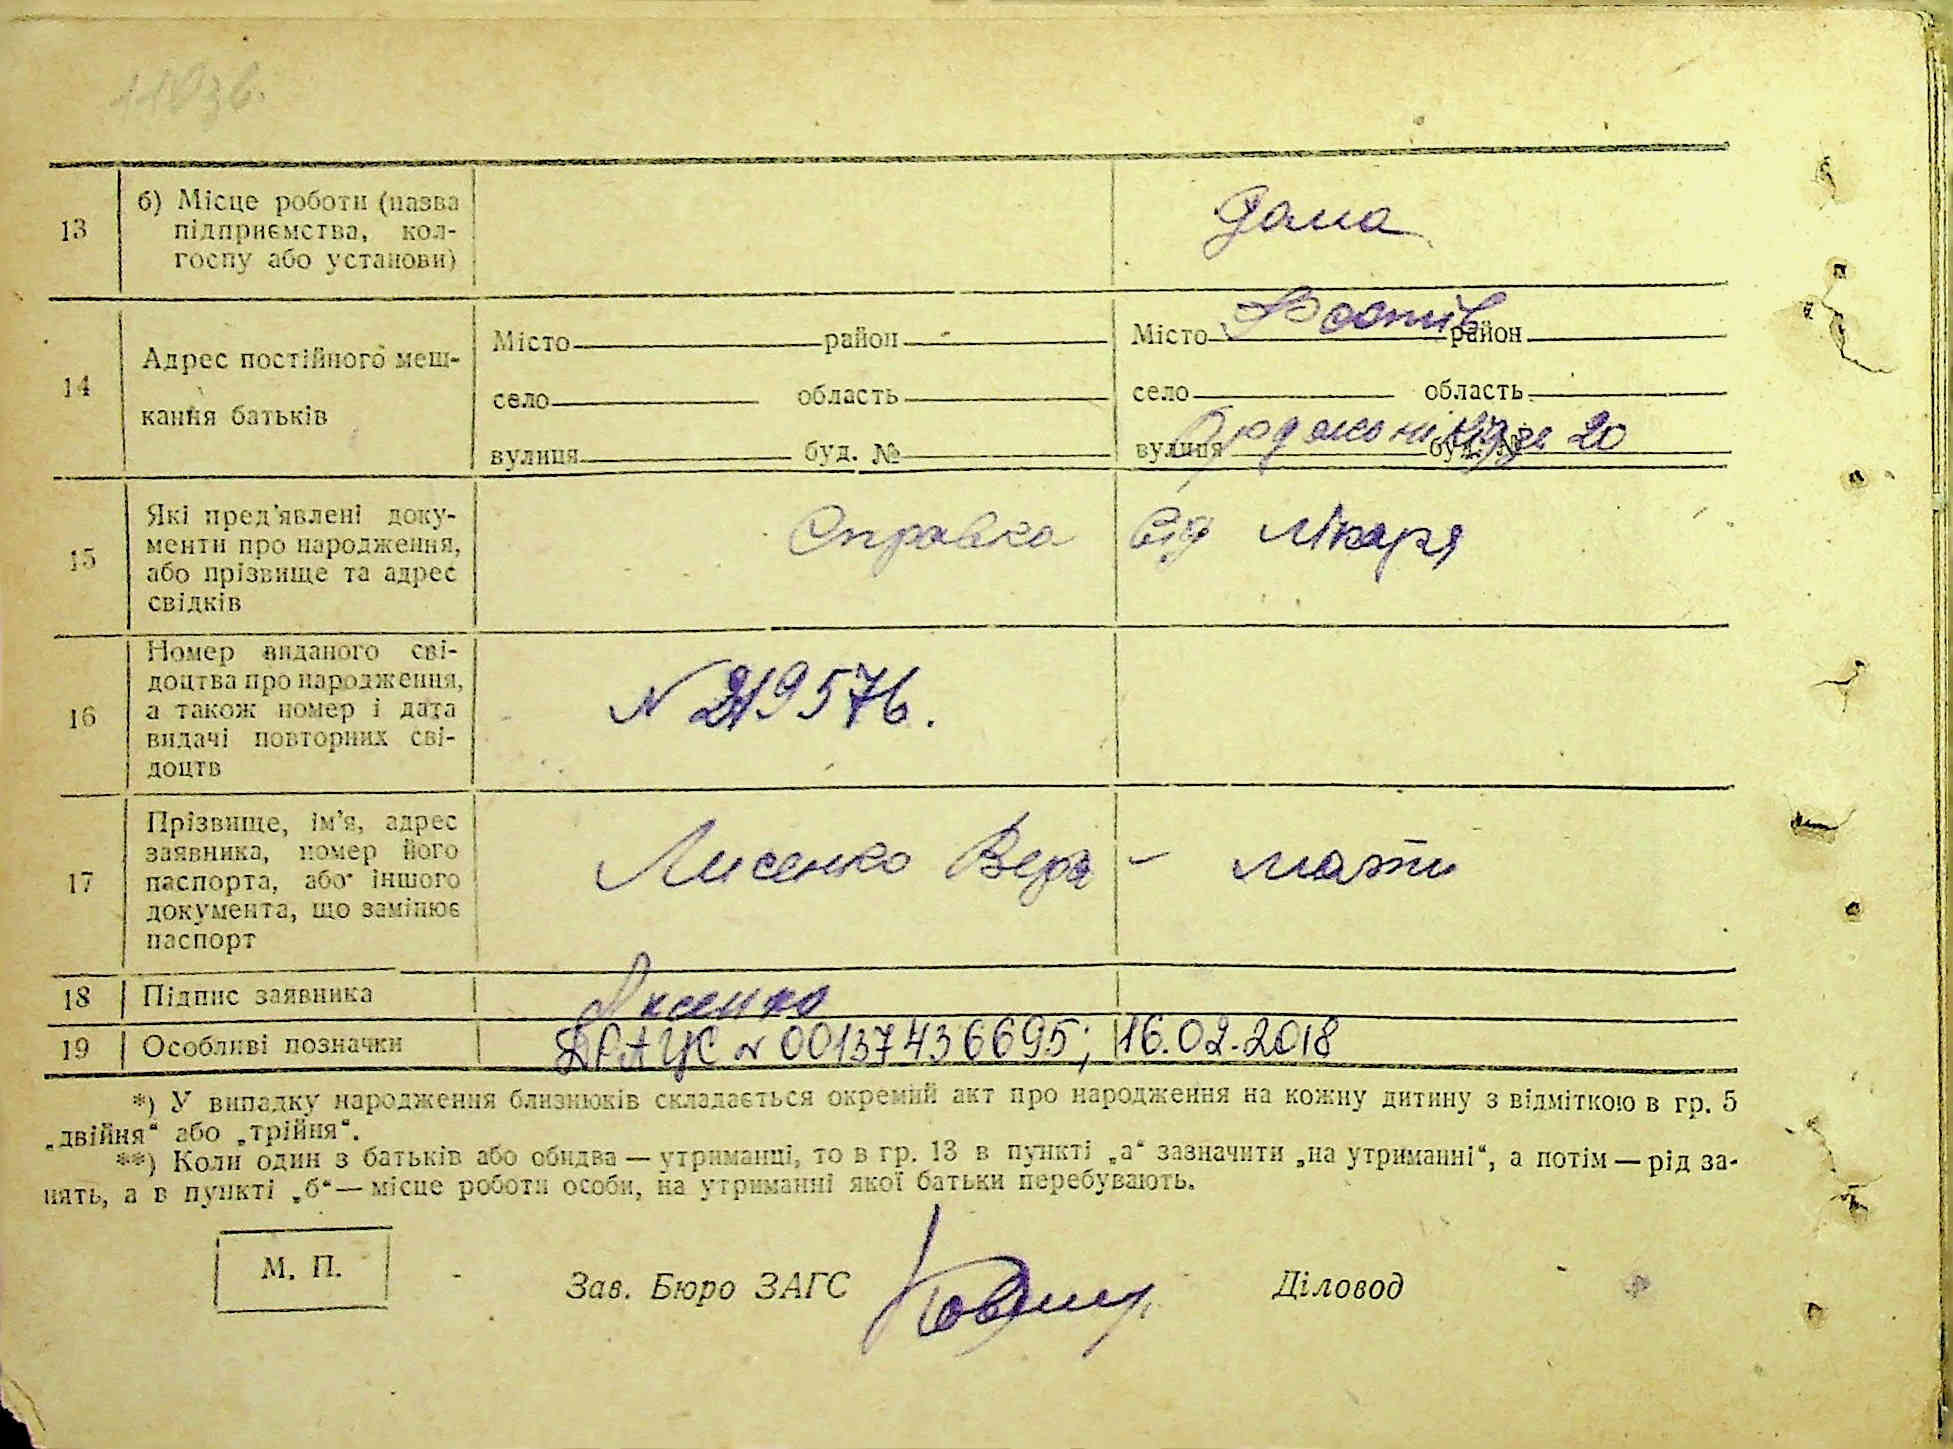 13
б) Місце роботи (назва
підприємства, кол-
госпу або установи)
дома
14
Адрес постійного меш-
кання батьків
Місто район
село область
вулиця буд. №
Місто Фастів район
село область
вулиця Орджонікідзе буд. № 20
15
Які пред'явлені доку-
менти про народження,
або прізвище та адрес
свідків
Справка від лікаря
16
Номер виданого сві-
доцтва про народження,
а також номер і дата
видачі повторних сві-
доцтв
N 219576.
17
Прізвище, ім'я, адрес
заявника, номер його
паспорта, або іншого
документа, що замінює
паспорт
Лисенко Вера – мати
18 Підпис заявника Лисенко
19 Особливі позначки ДРАЦС N 00137436695; 16.02.2018
*) У випадку народження близнюків складається окремий акт про народження на кожну дитину з відміткою в гр. 5
„двійня“ або „трійня“.
**) Коли один з батьків або обидва — утриманці, то в гр. 13 в пункті „а“ зазначити „на утриманні“, а потім — рід за-
нять, а в пункті „б“ — місце роботи особи, на утриманні якої батьки перебувають.
М. П.
Зав. Бюро ЗАГС
Діловод